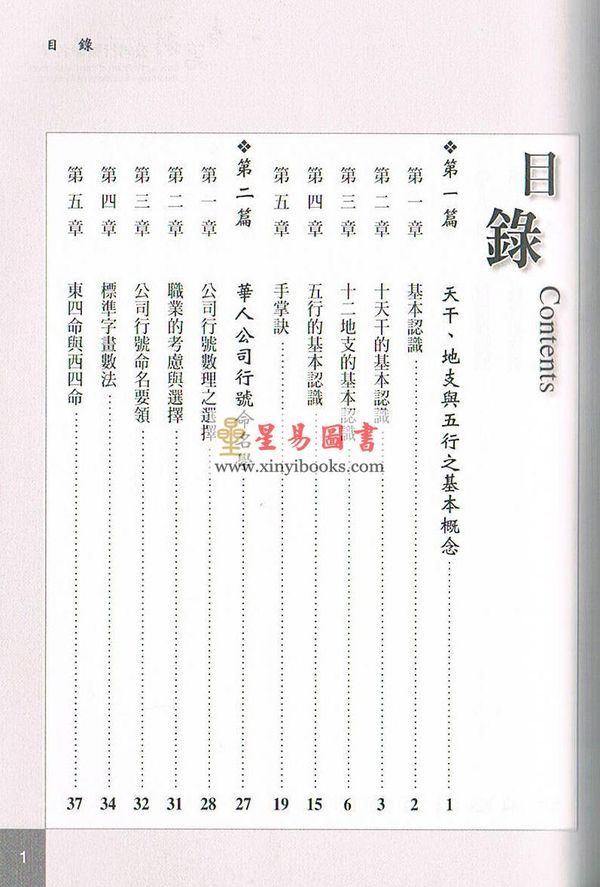 目錄
目錄
Contents
❖第一篇 天干、地支與五行之基本概念 1
第一章 基本認識 2
第二章 十天干的基本認識 3
第三章 十二地支的基本認識 6
第四章 五行的基本認識 15
第五章 手掌訣 19
❖第二篇 華人公司行號命名學 27
第一章 公司行號數理之選擇 28
第二章 職業的考慮與選擇 31
第三章 公司行號命名要領 32
第四章 標準字畫數法 34
第五章 東四命與西四命 37
星易圖書
www.xinyibooks.com
1